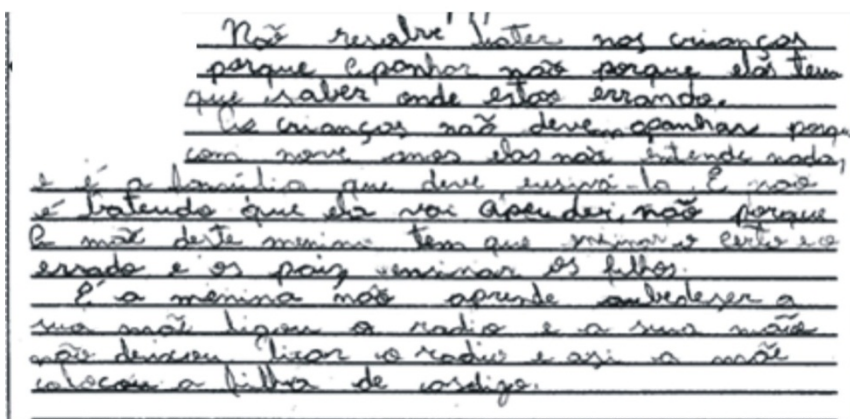 Não resolve bater nas crianças
porque apanhar não porque elas tem
que saber onde estão errando.
As crianças não devem apanhar porqu
com nove anos elas não intende nada,
e é a família que deve ensiná-la. E não
é batendo que ela vai apender, não porque
a mãe deste menino tem que ensinar o certo e o
errado e os pais ensinar os filhos.
E a menina não aprende aubedeser a
sua mãe ligou o radio e a sua mãe
não deixou ligar o radio e asi a mãe
colocou a filha de casdigo.